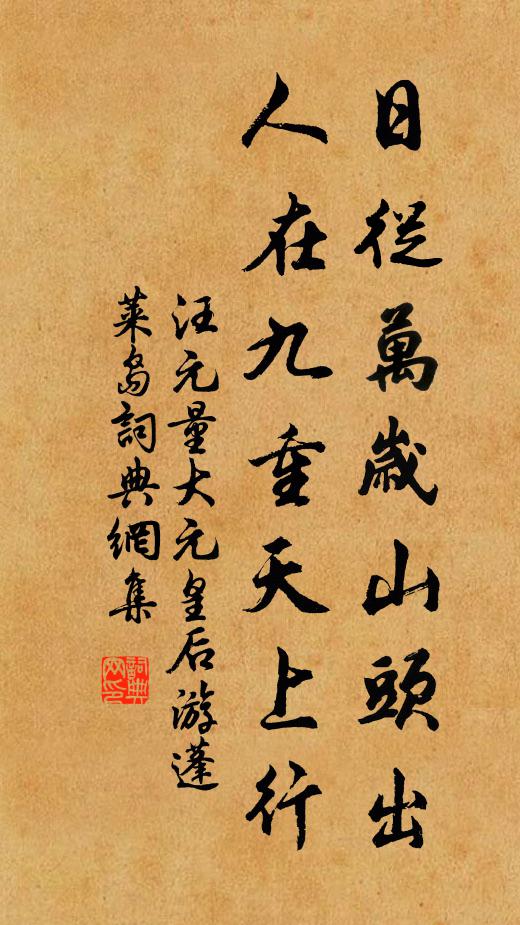 日從萬歲山頭出
人在九重天上行
汪元量大元皇后游蓬
萊島詞典網集
詞典网印